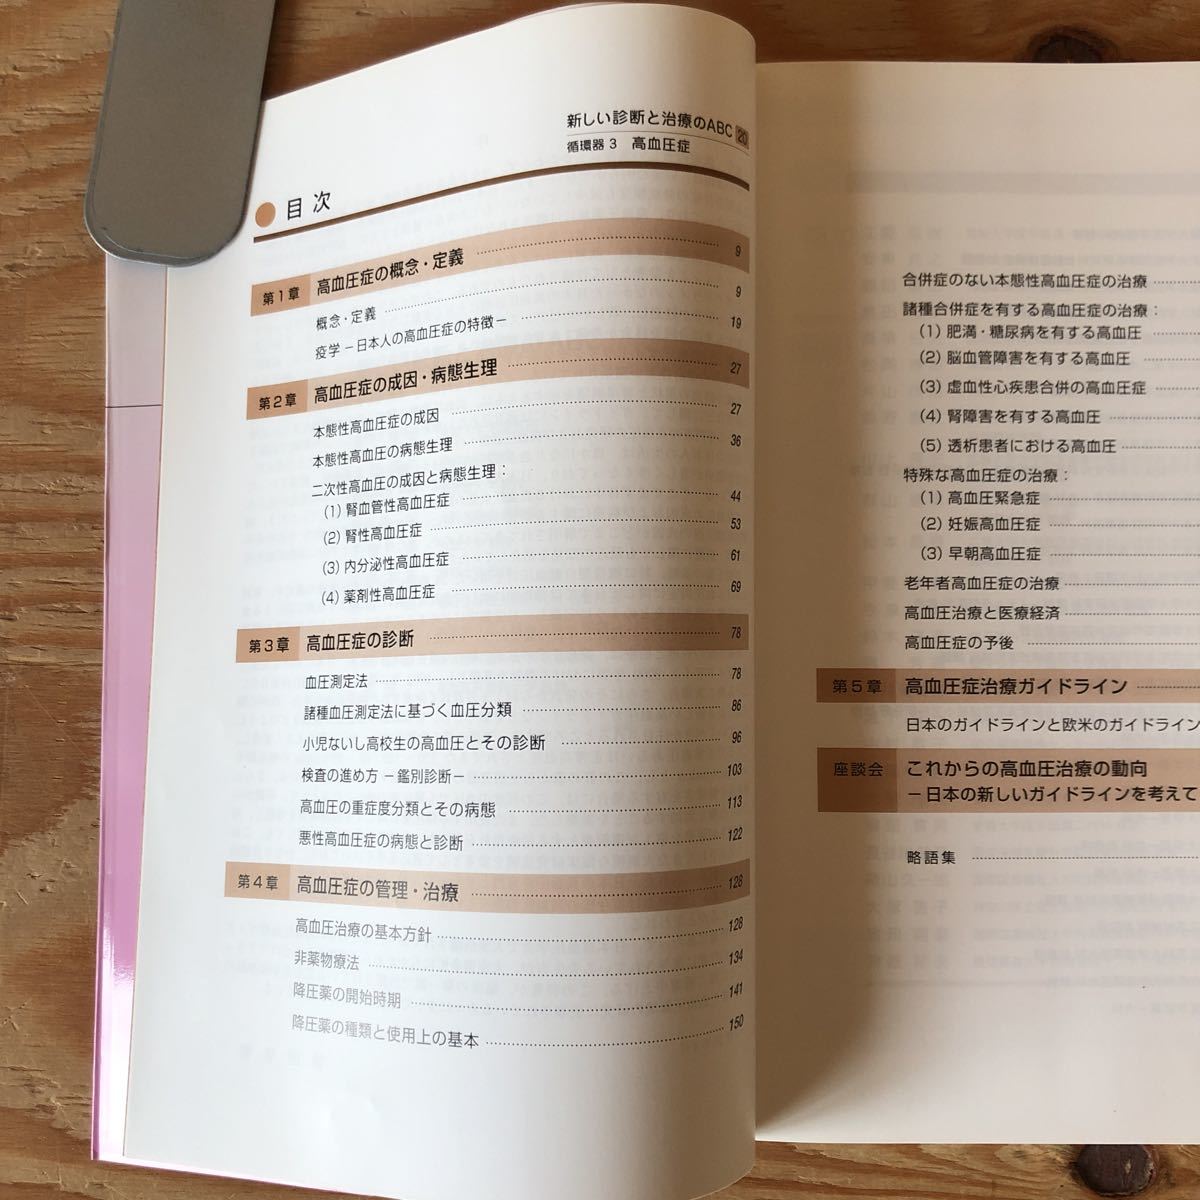 新しい診断と治療のABC 20
循環器 3 高血圧症
目次
第1章 高血圧症の概念・定義 9
概念・定義 9
疫学 －日本人の高血圧症の特徴－ 19
第2章 高血圧症の成因・病態生理 27
本態性高血圧症の成因 27
本態性高血圧の病態生理 36
二次性高血圧の成因と病態生理：
(1) 腎血管性高血圧症 44
(2) 腎性高血圧症 53
(3) 内分泌性高血圧症 61
(4) 薬剤性高血圧症 69
第3章 高血圧症の診断 78
血圧測定法 78
諸種血圧測定法に基づく血圧分類 86
小児ないし高校生の高血圧とその診断 96
検査の進め方 －鑑別診断－ 103
高血圧の重症度分類とその病態 113
悪性高血圧症の病態と診断 122
第4章 高血圧症の管理・治療 128
高血圧治療の基本方針 128
非薬物療法 134
降圧薬の開始時期 141
降圧薬の種類と使用上の基本 150
合併症のない本態性高血圧症の治療
諸種合併症を有する高血圧症の治療：
(1) 肥満・糖尿病を有する高血圧
(2) 脳血管障害を有する高血圧
(3) 虚血性心疾患合併の高血圧症
(4) 腎障害を有する高血圧
(5) 透析患者における高血圧
特殊な高血圧症の治療：
(1) 高血圧緊急症
(2) 妊娠高血圧症
(3) 早朝高血圧症
老年者高血圧症の治療
高血圧治療と医療経済
高血圧症の予後
第5章 高血圧症治療ガイドライン
日本のガイドラインと欧米のガイドライン
座談会 これからの高血圧治療の動向
－日本の新しいガイドラインを考えて
略語集